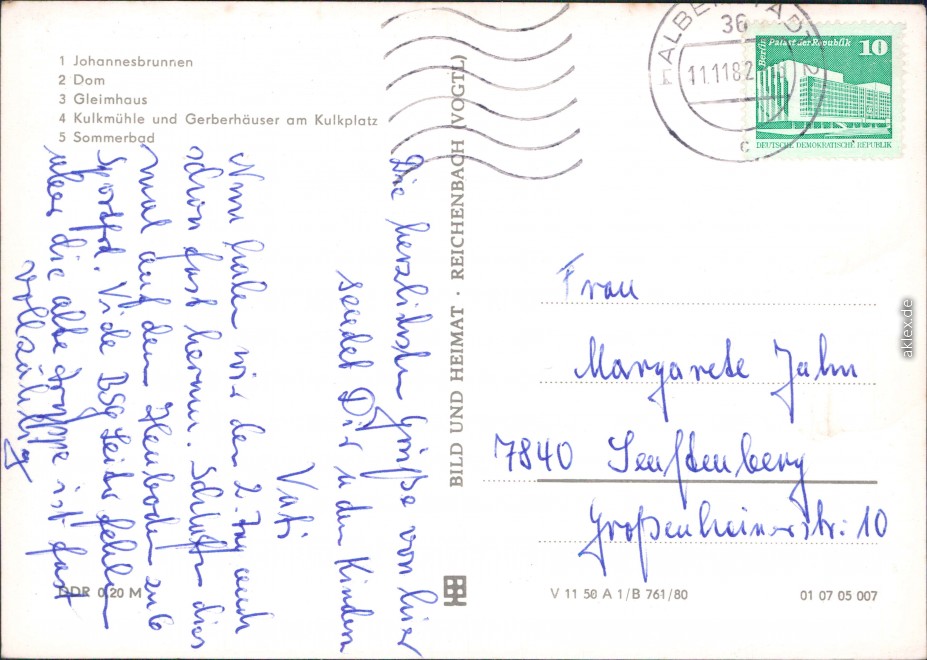 1 Johannesbrunnen
2 Dom
3 Gleimhaus
4 Kulkmühle und Gerberhäuser am Kulkplatz
5 Sommerbad
Die herzlichsten Grüße von hier
sendet Dir u. den Kindern
Vati
Nun haben wir den 2. Tag auch
schon fast herum. Schlafen dies
mal auf dem Heuboden zu 6
Sportfrd. Viele BSG Leiter fehlen
aber die alte Truppe ist fast
vollzählig
DDR 0,20 M
BILD UND HEIMAT · REICHENBACH (VOGTL)
HALBERSTADT 2
36
11.11.82
c
Berlin Palast der Republik 10
DEUTSCHE DEMOKRATISCHE REPUBLIK
Frau
Margarete Jahn
7840 Senftenberg
Großenhainerstr. 10
V 11 50 A 1/B 761/80
01 07 05 007
aklex.de